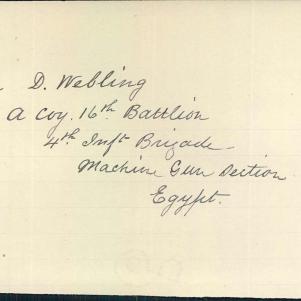 D. Webling
A Coy. 16th Battlion
4th Inft Brigade
Machine Gun Section
Egypt.